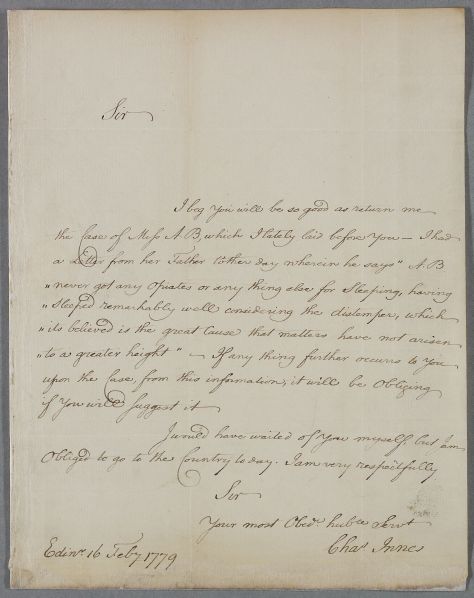 Sir
I beg You will be so good as return me
the Case of Miss A.B, which I lately laid before You — I had
a Letter from her Father t'other day wherein he says " A.B
" never got any Opiates or any thing else for Sleeping, having
" Sleeped remarkably well considering the distemper, which
" its believed is the great Cause that matters have not arisen
" to a greater height " — If any thing further occurrs to You
upon the Case, from this information, it will be Obliging
if You will Suggest it
I would have waited of You myself, but I am
Obliged to go to the Country to day. I am very respectfully
Sir
Your most Obedt. huble Servt
Chas Innes
Edinr. 16 Feby 1779